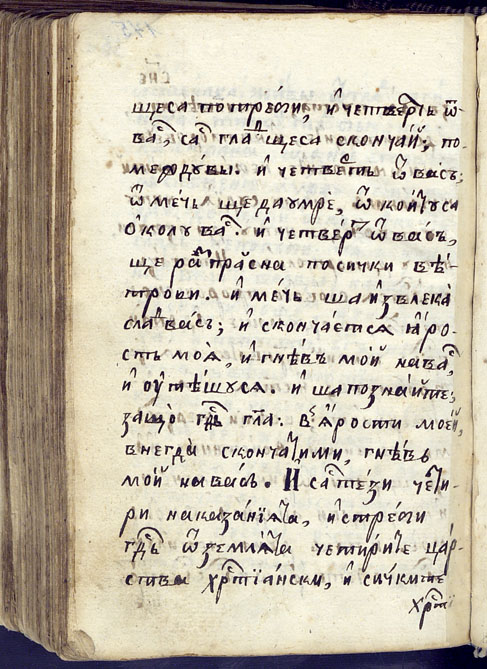 щеса потреби, и҆ четверть ѿ
ва́с, са гла́дъ щеса скончай, по-
междꙋвы. и҆ четвесть ѿ васъ,
ѿ мечь щеда умре, ѿ кои҆тꙋса
ѻ҆колꙋ ва́с. и҆ четверт ѿ васъ,
ще распрасна посички вѣ-
трови. и҆ мечь ща и҆звлека
слѧд васъ, и҆ скончаетсѧ ꙗ҆ро-
сть моѧ, и҆ гнѣвъ мой на вас,
и҆ оутѣшусѧ. и҆ ща познайте,
защо гдⷭ҇ь гла. въ ꙗ҆рости моей,
внегда скончатими, гнѣвъ
мой на васъ. И сатези чети-
ри наказанїѧта, и҆стреби
гдⷭ҇ь ѿ землѧта четирите цар-
ства хрⷭ҇тїански, и҆ сички те
хрⷭ҇тї